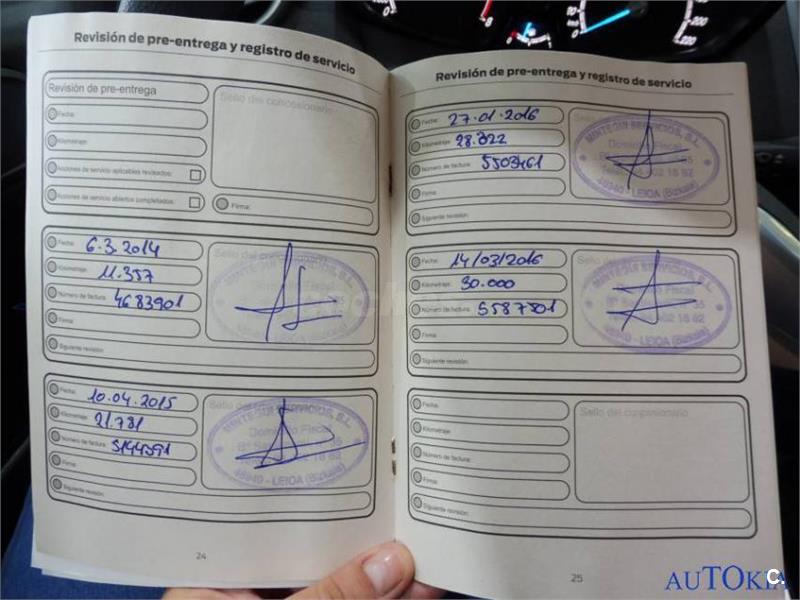 Revisión de pre-entrega y registro de servicio
Revisión de pre-entrega
Sello del concesionario
Fecha:
Kilometraje:
Acciones de servicio aplicables revisados:
Acciones de servicio abiertos completados:
Firma:
Fecha: 6.3.2014
Kilometraje: 11.357
Número de factura: 4683901
Firma:
Siguiente revisión:
Sello del concesionario
MINTEGUI SERVICIOS, S.L.
LEIOA (Bizkaia)
Fecha: 10.04.2015
Kilometraje: 21.781
Número de factura:
Firma:
Siguiente revisión:
MINTEGUI SERVICIOS, S.L.
Domicilio Fiscal
48940 - LEIOA (Bizkaia)
24
Revisión de pre-entrega y registro de servicio
Fecha: 27.01.2016
Kilometraje: 28.322
Número de factura: 5503461
Firma:
Siguiente revisión:
MINTEGUI SERVICIOS, S.L.
Domicilio Fiscal
48940 - LEIOA (Bizkaia)
Fecha: 14/03/2016
Kilometraje: 30.000
Número de factura: 5587801
Firma:
Siguiente revisión:
MINTEGUI SERVICIOS, S.L.
48940 - LEIOA (Bizkaia)
Fecha:
Kilometraje:
Número de factura:
Firma:
Siguiente revisión:
Sello del concesionario
25
AUTOKIA
C.